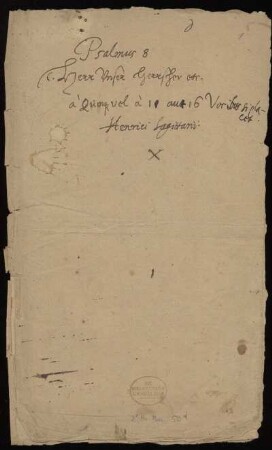 Psalmus 8
Herr Unser Herrscher etc.
à Quinq, vel à 11 aut 16 Vocibus si pla-
cet
Henrici Sagittarii
X
1